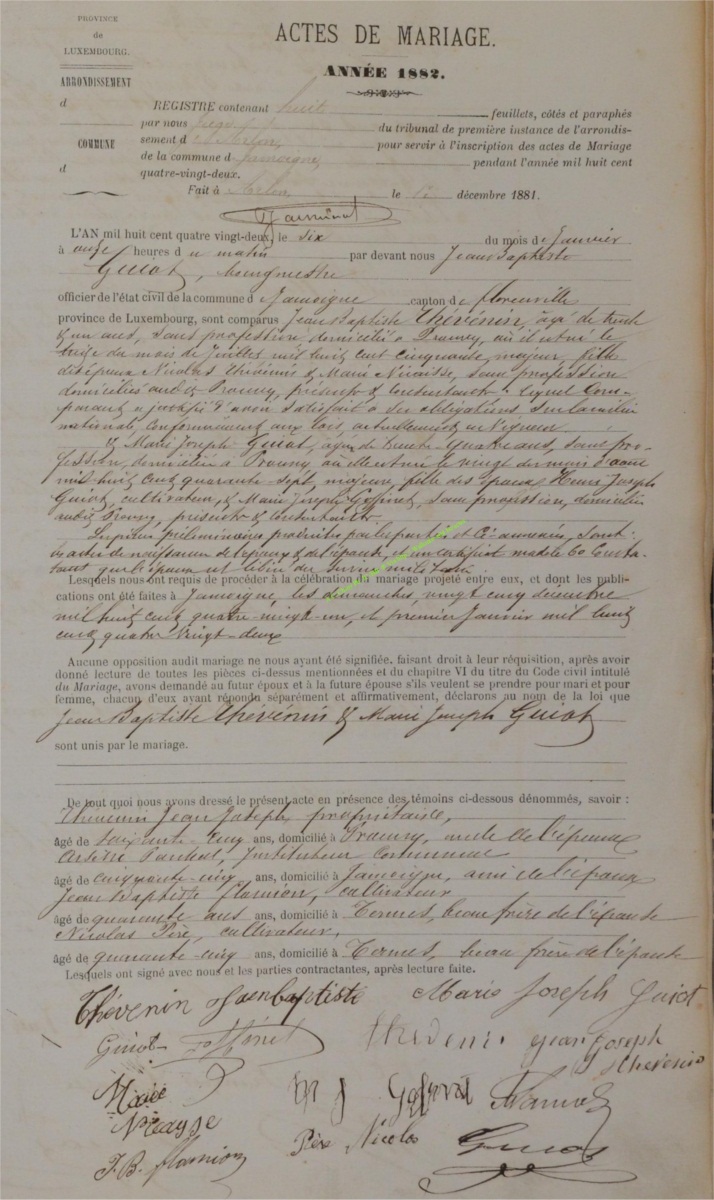 PROVINCE
de
LUXEMBOURG.
ARRONDISSEMENT
d
COMMUNE
d
ACTES DE MARIAGE.
ANNÉE 1882.
REGISTRE contenant huit feuillets, côtés et paraphés
par nous du tribunal de première instance de l'arrondis-
sement d Arlon, pour servir à l'inscription des actes de Mariage
de la commune d Jamoigne, pendant l'année mil huit cent
quatre-vingt-deux.
Fait à Arlon, le décembre 1881.
L'AN mil huit cent quatre vingt-deux, le six du mois de Janvier
à onze heures du matin par devant nous Jean Baptiste
Guiot, bourgmestre
officier de l'état civil de la commune de Jamoigne canton de Florenville
province de Luxembourg, sont comparus Jean Baptiste Thévenin, âgé de trente
et un ans, sans profession, domicilié à Prouvy, où il est né le
treize du mois de Juillet mil huit cent cinquante, majeur, fils
des époux Nicolas Thévenin & Marie Nicaisse, sans profession
domiciliés audit Prouvy, présents & consentants, lequel Com-
parant a justifié d'avoir satisfait à ses obligations sur la milice
nationale, conformément aux lois actuellement en vigueur.
& Marie Joseph Guiot, âgée de trente-quatre ans, sans pro-
fession, domiciliée à Prouvy, où elle est née le vingt du mois d'août
mil huit cent quarante-sept, majeure, fille des époux Henri Joseph
Guiot, cultivateur, & Marie Joseph Goffinet, sans profession, domiciliés
audit Prouvy, présents & consentants.
Les pièces préliminaires produites par les parties et ci-annexées, sont:
les actes de naissance de l'époux & de l'épouse, et un certificat modèle consta-
tant que l'époux est libéré du service militaire.
Lesquels nous ont requis de procéder à la célébration du mariage projeté entre eux, et dont les publi-
cations ont été faites à Jamoigne, les dimanches, vingt cinq décembre
mil huit cent quatre-vingt-un, et premier Janvier mil huit
cent quatre vingt-deux
Aucune opposition audit mariage ne nous ayant été signifiée, faisant droit à leur réquisition, après avoir
donné lecture de toutes les pièces ci-dessus mentionnées et du chapitre VI du titre du Code civil intitulé
du Mariage, avons demandé au futur époux et à la future épouse s'ils veulent se prendre pour mari et pour
femme, chacun d'eux ayant répondu séparément et affirmativement, déclarons au nom de la loi que
Jean Baptiste Thévenin & Marie Joseph Guiot
sont unis par le mariage.
De tout quoi nous avons dressé le présent acte en présence des témoins ci-dessous dénommés, savoir :
Thévenin Jean Joseph, propriétaire,
âgé de soixante-cinq ans, domicilié à Prouvy, oncle de l'époux
Instituteur communal
âgé de cinquante-cinq ans, domicilié à Jamoigne, ami de l'époux
Jean Baptiste Flamion, cultivateur
âgé de quarante ans ans, domicilié à Termes, beau frère de l'épouse
Nicolas Père, cultivateur,
âgé de quarante-cinq ans, domicilié à Termes, beau frère de l'épouse
Lesquels ont signé avec nous et les parties contractantes, après lecture faite.
Thévenin Jean baptiste Marie Joseph Guiot
Guiot Goffinet thevenin jean joseph
thevenin
Marie
Nicayse
J.B. flamion Père Nicolas Guiot